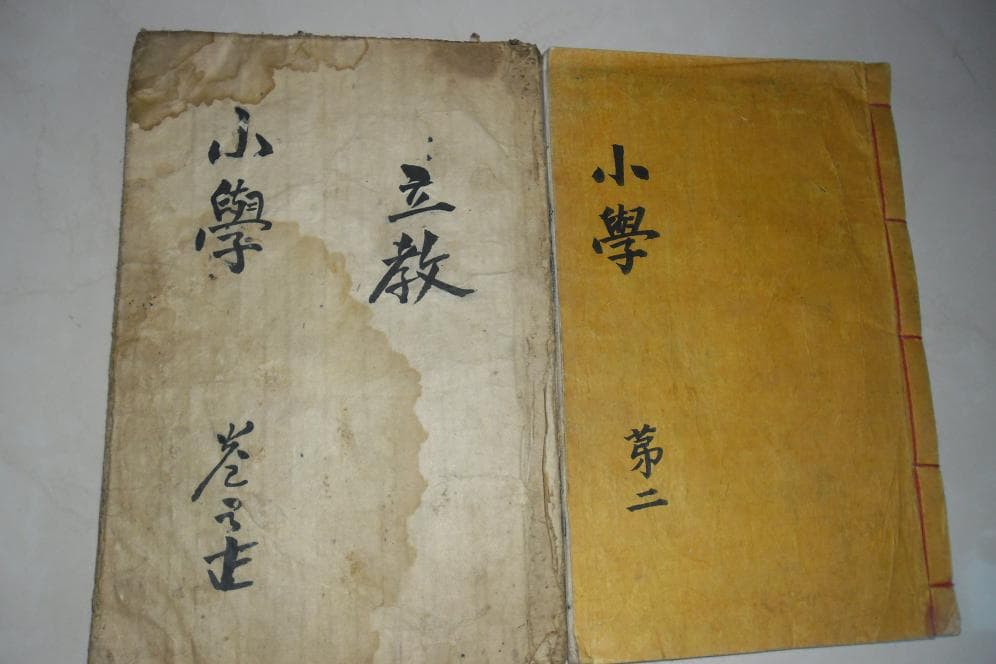 小學
卷
立教
小學
第二